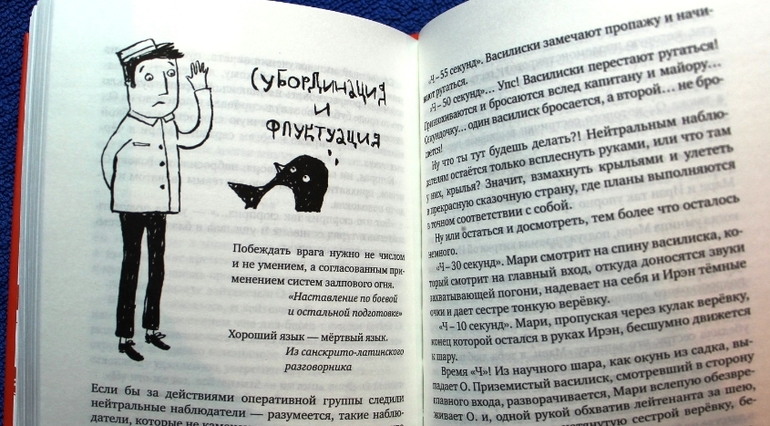 Субординация
и
флуктуация
Побеждать врага нужно не числом
и не умением, а согласованным при-
менением систем залпового огня.
«Наставление по боевой
и остальной подготовке»
Хороший язык — мёртвый язык.
Из санскрито-латинского
разговорника
Если бы за действиями оперативной группы следили
нейтральные наблюдатели — разумеется, такие наблю-
датели, которые не
«Ч – 55 секунд». Василиски замечают пропажу и начи-
нают ругаться.
«Ч – 50 секунд»... Упс! Василиски перестают ругаться!
Принюхиваются и бросаются вслед капитану и майору...
Секундочку... один василиск бросается, а второй... не бро-
сается!
Ну что ты тут будешь делать?! Нейтральным наблю-
дателям остаётся только всплеснуть руками, или что там
у них, крылья? Значит, взмахнуть крыльями и улететь
в прекрасную сказочную страну, где планы выполняются
в точном соответствии с собой.
Ну или остаться и досмотреть, тем более что осталось
немного.
«Ч – 30 секунд». Мари смотрит на спину василиска, ко-
торый смотрит на главный вход, откуда доносятся звуки
захватывающей погони, надевает на себя и Ирэн тёмные
очки и дает сестре тонкую верёвку.
«Ч – 10 секунд». Мари, пропуская через кулак верёвку,
конец которой остался в руках Ирэн, бесшумно движется
к шару.
Время «Ч»! Из научного шара, как окунь из садка, вы-
падает О. Приземистый василиск, смотревший в сторону
главного входа, разворачивается, Мари вслепую обезвре-
живает О. и, одной рукой обхватив лейтенанта за шею,
сестрой верёвку, бе-